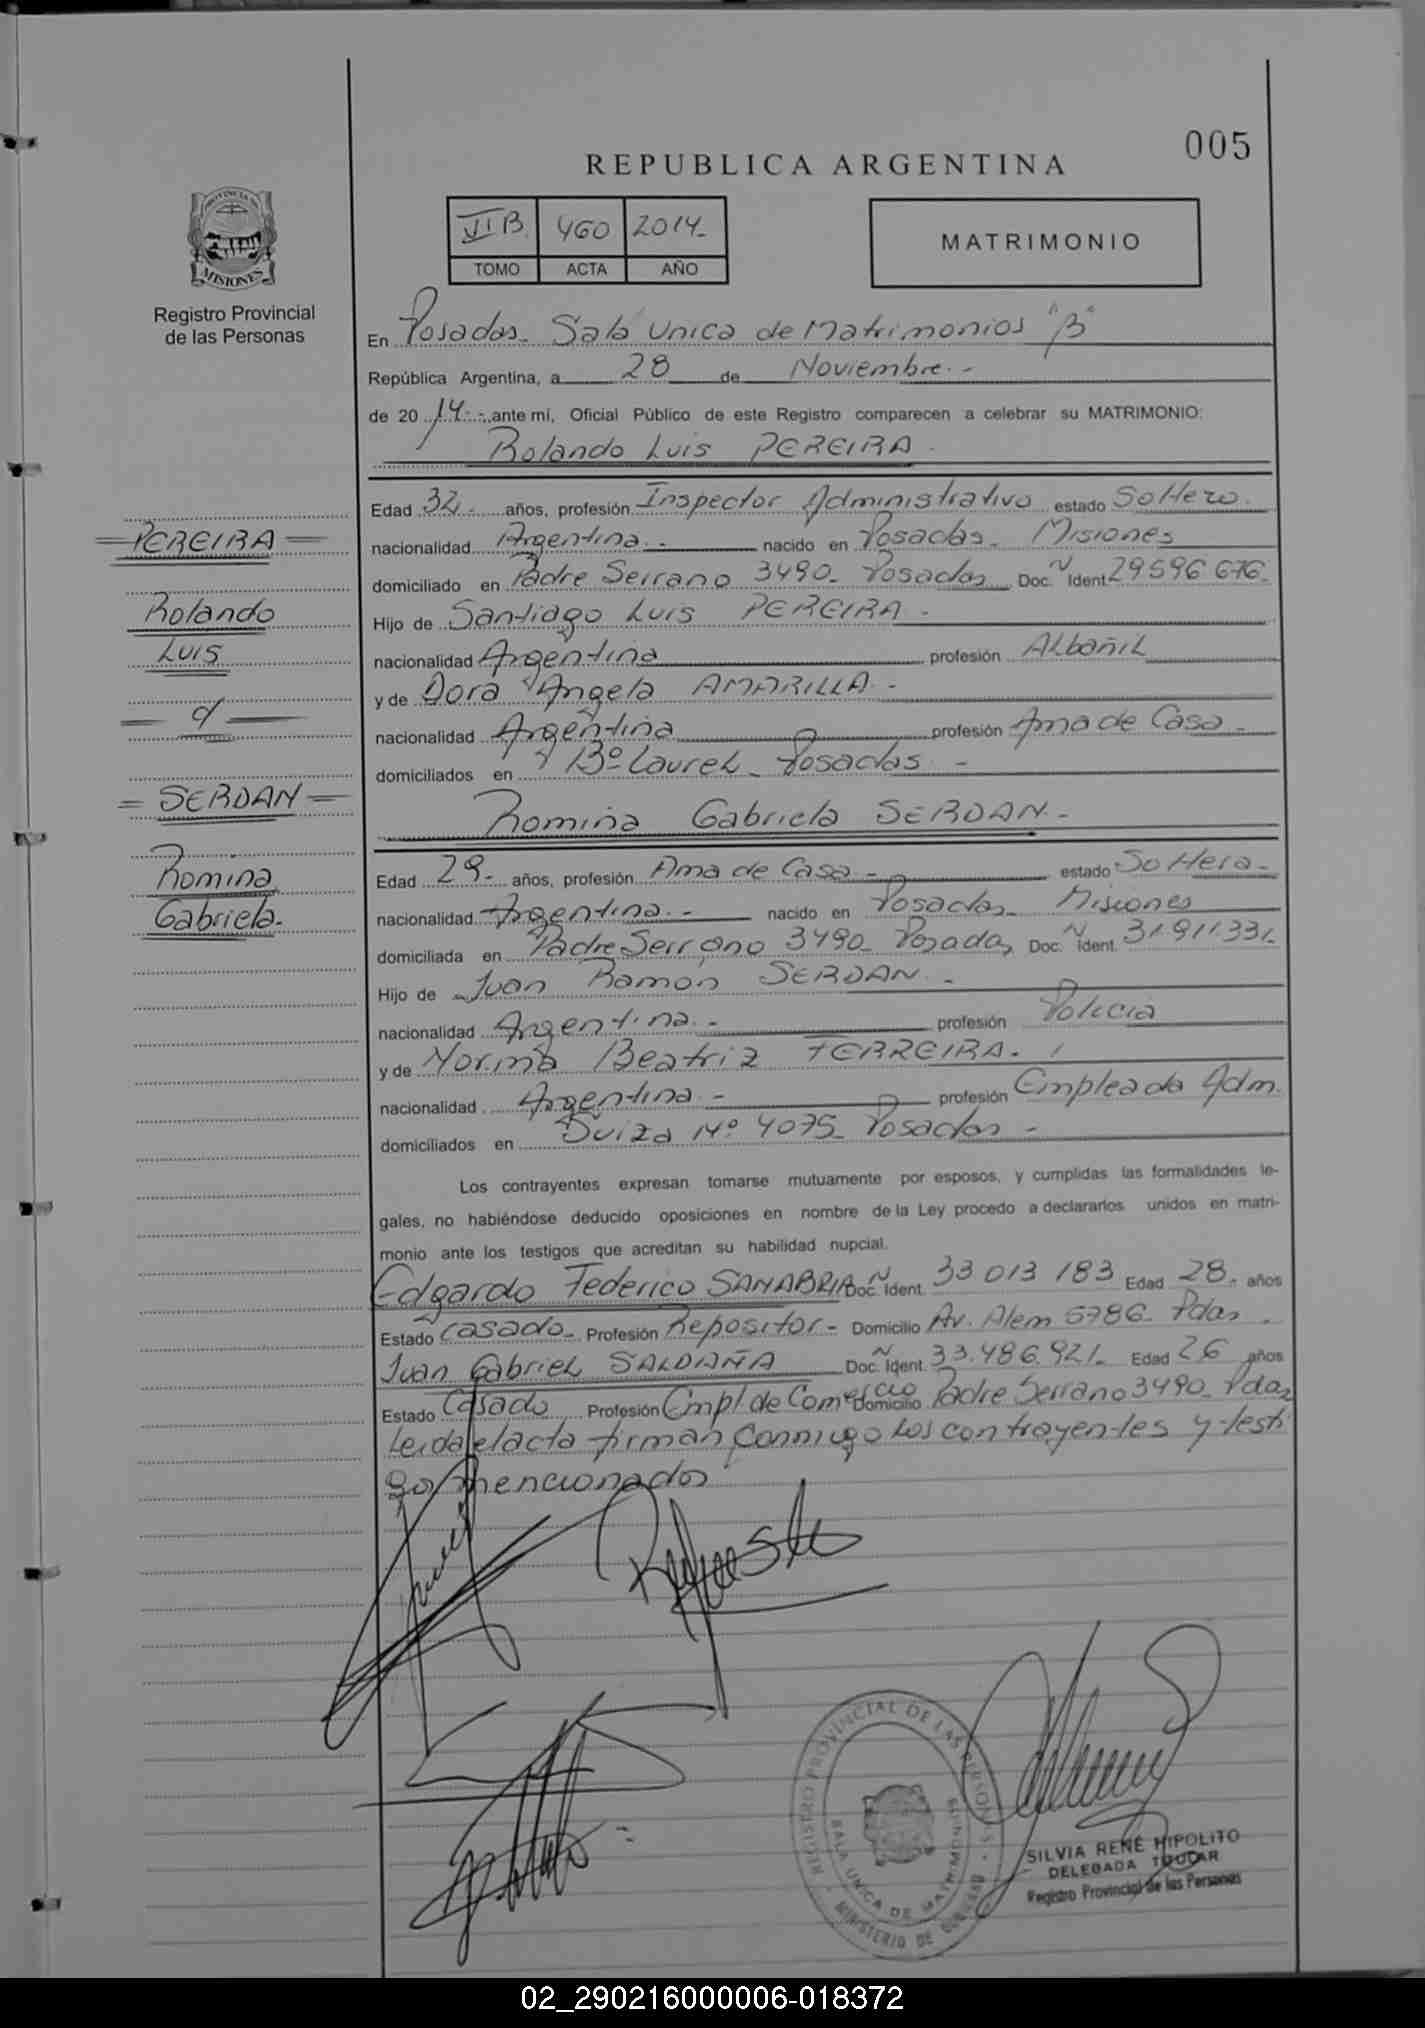 005
REPUBLICA ARGENTINA
VI B. 460 2014.-
TOMO ACTA AÑO
MATRIMONIO
PROVINCIA DE
MISIONES
Registro Provincial
de las Personas
En Posadas.- Sala Unica de Matrimonios "B"
República Argentina, a 28 de Noviembre.-
de 20 14.- ante mí, Oficial Público de este Registro comparecen a celebrar su MATRIMONIO:
Rolando Luis PEREIRA.
Edad 32.- años, profesión Inspector Administrativo estado Soltero.
PEREIRA
nacionalidad Argentina.- nacido en Posadas.- Misiones
domiciliado en Padre Serrano 3490.- Posadas Doc. N Ident. 29596676.
Rolando
Hijo de Santiago Luis PEREIRA.-
Luis
nacionalidad Argentina profesión Albañil
y de Dora Angela AMARILLA.-
c/
nacionalidad Argentina profesión Ama de Casa.-
domiciliados en Bº Laurel.- Posadas.-
= SERDAN =
Romina Gabriela SERDAN.-
Romina
Edad 29.- años, profesión Ama de Casa.- estado Soltera.-
Gabriela.
nacionalidad Argentina.- nacido en Posadas.- Misiones
domiciliada en Padre Serrano 3490.- Posadas Doc. N Ident. 31.911.331.
Hijo de Juan Ramón SERDAN.-
nacionalidad Argentina.- profesión Policia
y de Norma Beatriz FERREIRA.
nacionalidad Argentina.- profesión Empleada Adm.
domiciliados en Suiza Nº 4075.- Posadas.-
Los contrayentes expresan tomarse mutuamente por esposos, y cumplidas las formalidades le-
gales, no habiéndose deducido oposiciones en nombre de la Ley procedo a declararlos unidos en matri-
monio ante los testigos que acreditan su habilidad nupcial.
Edgardo Federico SANABRIA Doc. N Ident. 33 013 183 Edad 28.- años
Estado Casado.- Profesión Repositor.- Domicilio Av. Alem 5786.- Pdas.
Juan Gabriel SALDAÑA Doc. N Ident. 33.486.921.- Edad 26 años
Estado Casado Profesión Empl de Comercio Domicilio Padre Serrano 3490.- Pdas
Leida el acta firman conmigo los contrayentes y testi
gos mencionados
REGISTRO PROVINCIAL DE LAS PERSONAS
SALA UNICA DE MATRIMONIOS
MINISTERIO DE GOBIERNO
SILVIA RENE HIPOLITO
DELEGADA TITULAR
Registro Provincial de las Personas
02_290216000006-018372